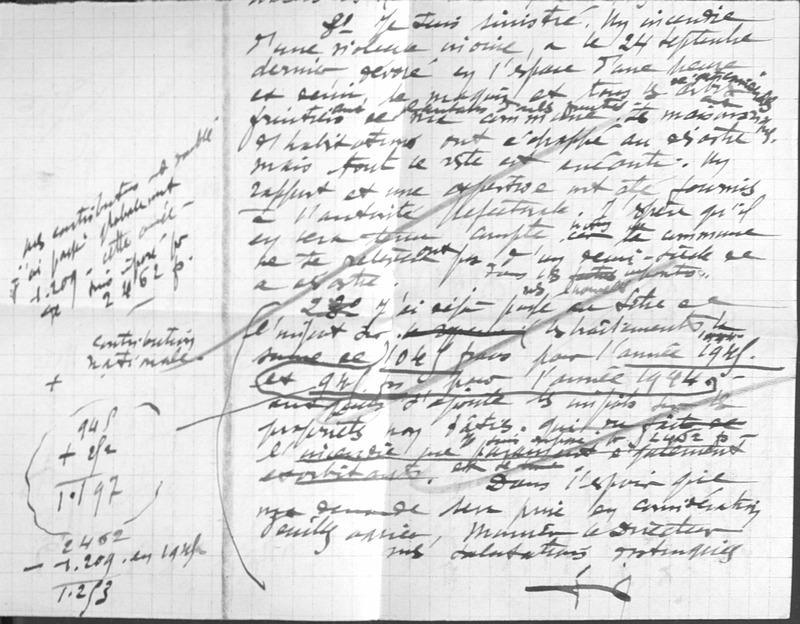 Je suis sinistré. Un incendie
d'une violence inouïe, a le 24 septembre
dernier dévoré en l'espace d'une heure
et demie le maquis et tous les arbres
fruitiers de ma commune. Les maisons
d'habitations ont échappé au désastre
mais tout le reste est anéanti. Un
rapport et une expertise ont été fournis
à l'autorité préfectorale. J'espère qu'il
en sera tenu compte la commune
ne se relèveront pas d'un demi-siècle de
ce désastre. dans les impôts.
2° J'ai déjà payé au titre de
l'impôt sur les traitements la
somme de 1045 francs pour l'année 1945
et 945 frs pour l'année 1944.
d'ajouter les impôts
propriétés non bâties. qui
l'incendie que également
exorbitants. et
Dans l'espoir que
ma demande sera prise en considération
veuillez agréer, Monsieur le Directeur
mes salutations distinguées
mes contributions ont doublé
j'ai payé globalement
1.209 - cette année -
suis imposé pr
2462 f.
contribution
nationale.
+
945
+ 252
1.197
2462
- 1.209 . en 1945
1.253